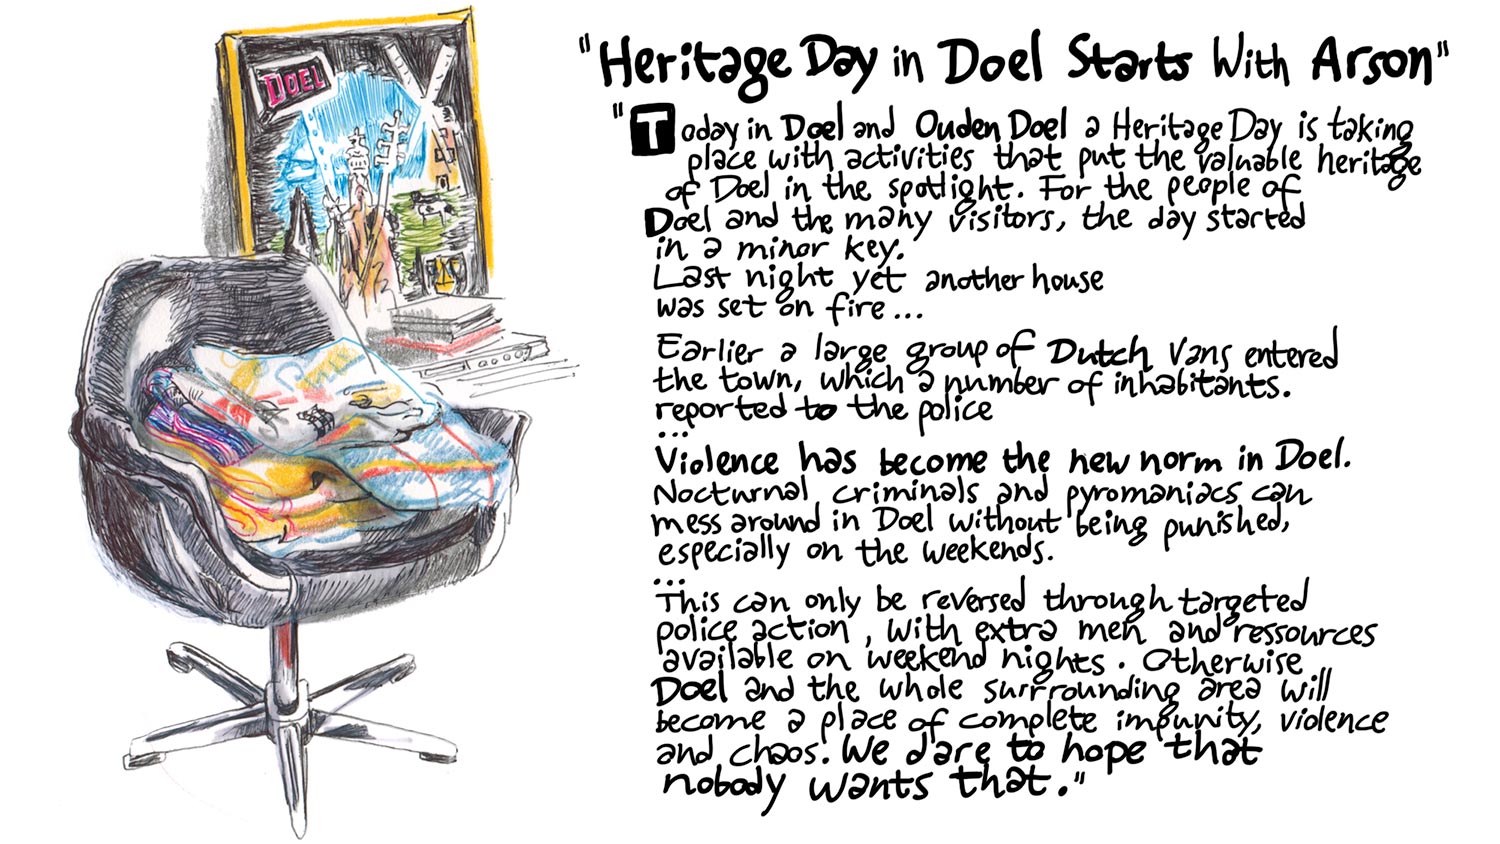 DOEL
"Heritage Day in Doel Starts With Arson"
"Today in Doel and Ouden Doel a Heritage Day is taking
place with activities that put the valuable heritage
of Doel in the spotlight. For the people of
Doel and the many visitors, the day started
in a minor key.
Last night yet another house
was set on fire...
Earlier a large group of Dutch vans entered
the town, which a number of inhabitants.
reported to the police
...
Violence has become the new norm in Doel.
Nocturnal criminals and pyromaniacs can
mess around in Doel without being punished,
especially on the weekends.
...
This can only be reversed through targeted
police action, with extra men and ressources
available on weekend nights. Otherwise
Doel and the whole surrrounding area will
become a place of complete impunity, violence
and chaos. We dare to hope that
nobody wants that."